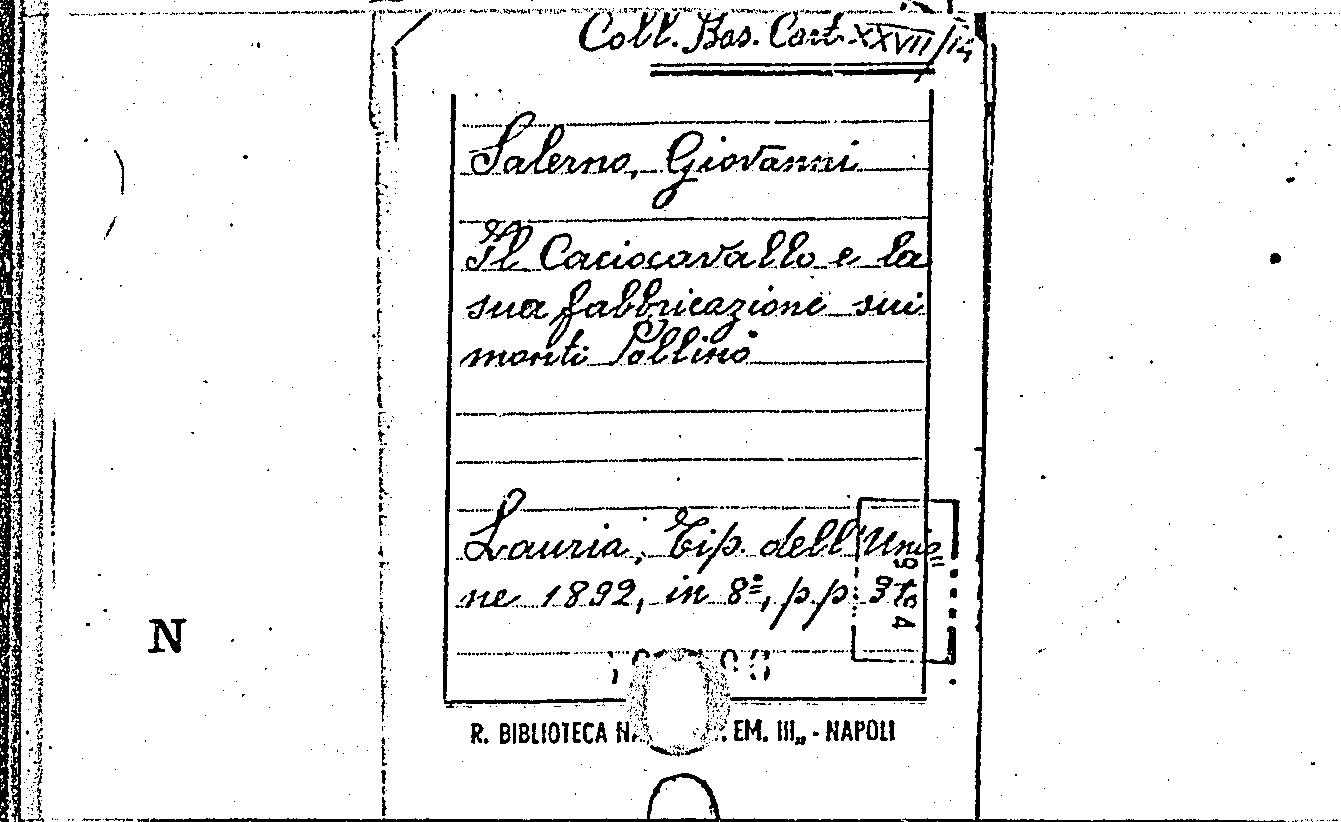 Coll. Bas. Cart. XXVII/14
Salerno, Giovanni
Il Caciocavallo e la
sua fabbricazione sui
monti Pollino
Lauria, Tip. dell'Unio
ne 1892, in 8º, pp.
N
R. BIBLIOTECA EM. III„ - NAPOLI